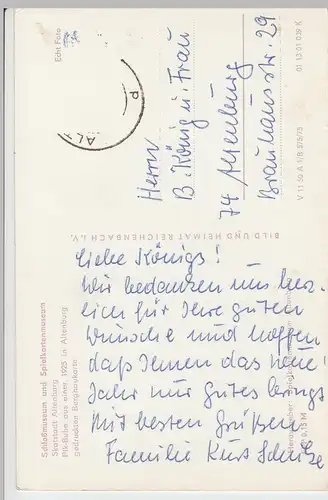 Liebe Königs!
Wir bedanken uns herz-
lich für Ihre guten
Wünsche und hoffen
daß Ihnen das neue
Jahr nur Gutes bringt
Mit besten Grüßen
Familie Kurt Schulze
Herrn
B. König u. Frau
74 Altenburg
Brauhausstr. 29
Echt Foto
BILD UND HEIMAT REICHENBACH i. V.
V 11 50 A 1/B 575/73 01 13 01 039 K
Schloßmuseum und Spielkartenmuseum
Skatstadt Altenburg
Pik-Bube aus einer 1925 in Altenburg
gedruckten Burgbaukarte